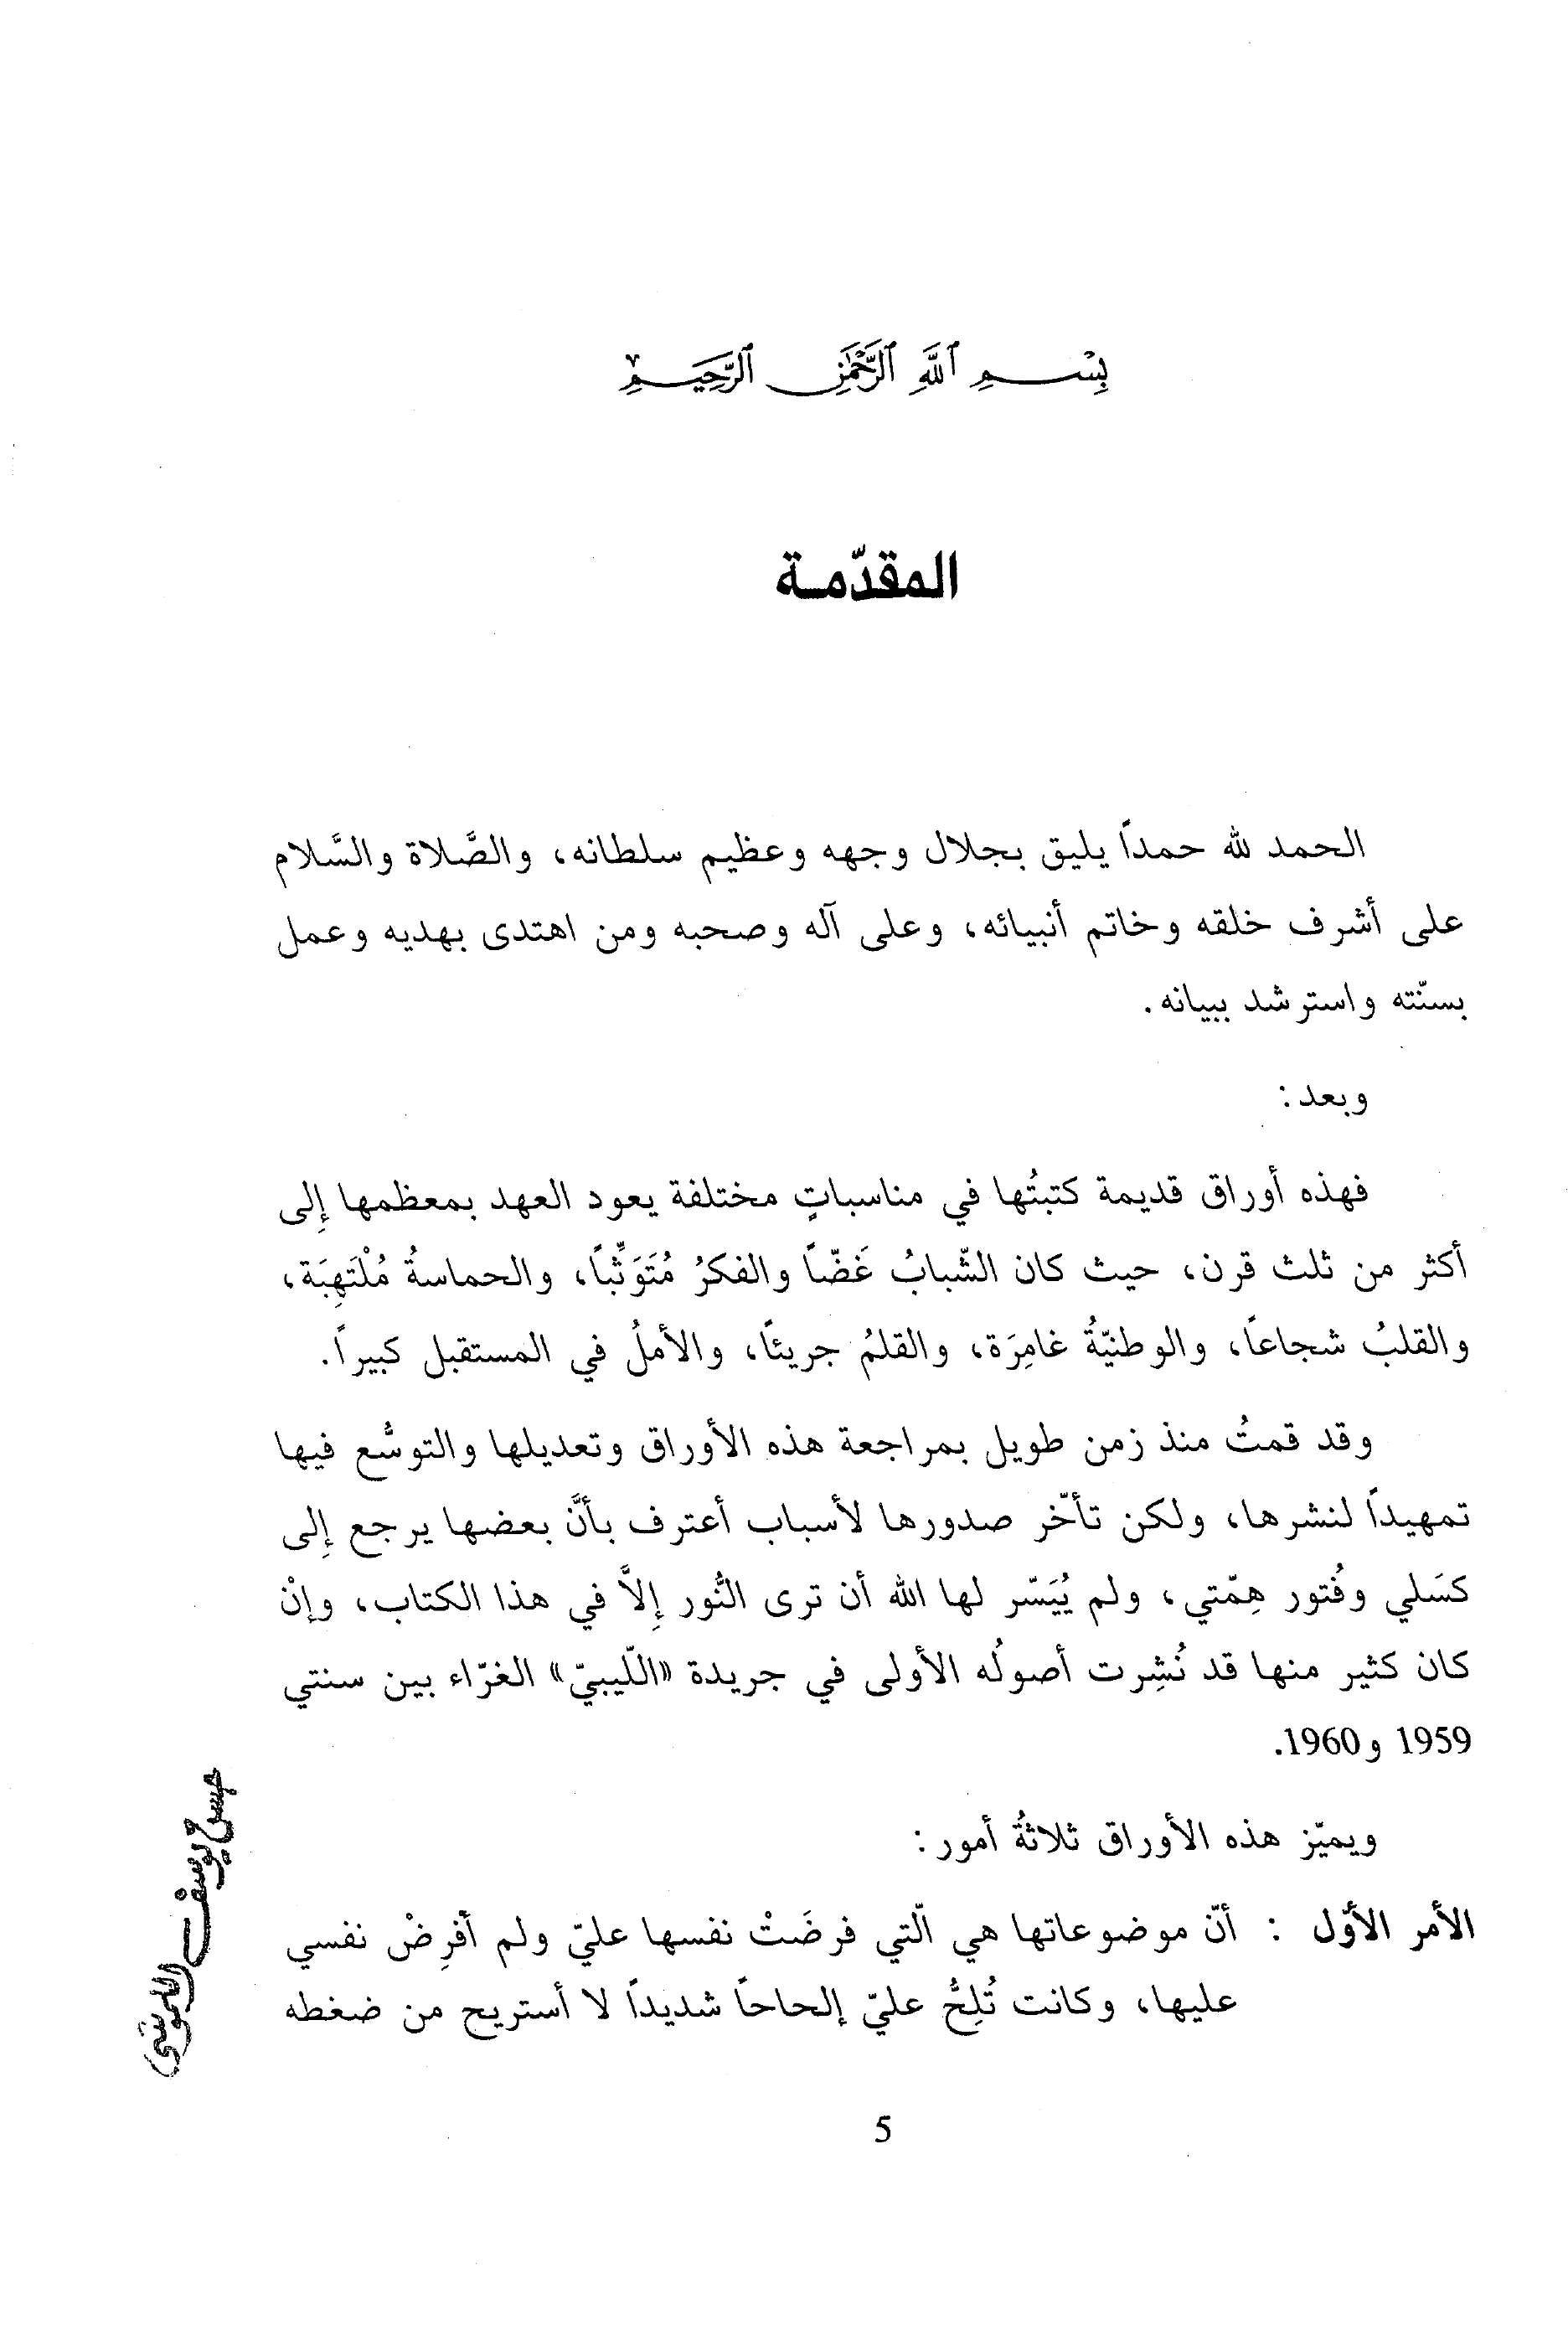 بِسْمِ ٱللَّهِ ٱلرَّحْمَٰنِ ٱلرَّحِيمِ
المقدّمـة
الحمد لله حمداً يليق بجلال وجهه وعظيم سلطانه، والصَّلاة والسَّلام
على أشرف خلقه وخاتم أنبيائه، وعلى آله وصحبه ومن اهتدى بهديه وعمل
بسنّته واسترشد ببيانه.
وبعد:
فهذه أوراق قديمة كتبتُها في مناسباتٍ مختلفة يعود العهد بمعظمها إلى
أكثر من ثلث قرن، حيث كان الشّبابُ غَضّاً والفكرُ مُتَوَثِّباً، والحماسةُ مُلْتَهِبَة،
والقلبُ شجاعاً، والوطنيّةُ غامِرَة، والقلمُ جريئاً، والأملُ في المستقبل كبيراً.
وقد قمتُ منذ زمن طويل بمراجعة هذه الأوراق وتعديلها والتوسُّع فيها
تمهيداً لنشرها، ولكن تأخّر صدورها لأسباب أعترف بأنَّ بعضها يرجع إلى
كسَلي وفُتور هِمّتي، ولم يُيَسّر لها الله أن ترى النُّور إلاَّ في هذا الكتاب، وإنْ
كان كثير منها قد نُشِرت أصولُه الأولى في جريدة «اللّيبيّ» الغرّاء بين سنتي
1959 و1960.
ويميّز هذه الأوراق ثلاثةُ أمور:
الأمر الأوّل : أنّ موضوعاتها هي الّتي فرضَتْ نفسها عليّ ولم أفرِضْ نفسي
عليها، وكانت تُلِحُّ عليّ إلحاحاً شديداً لا أستريح من ضغطه
5